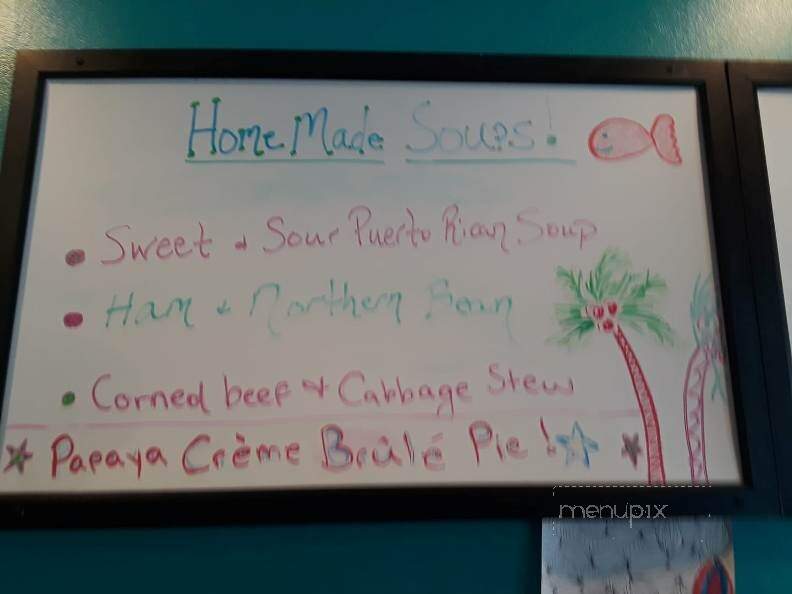 HomeMade Soups!
• Sweet & Sour Puerto Rican Soup
• Ham & Northern Bean
• Corned beef & Cabbage Stew
Papaya Crème Brûlé Pie!
menupix